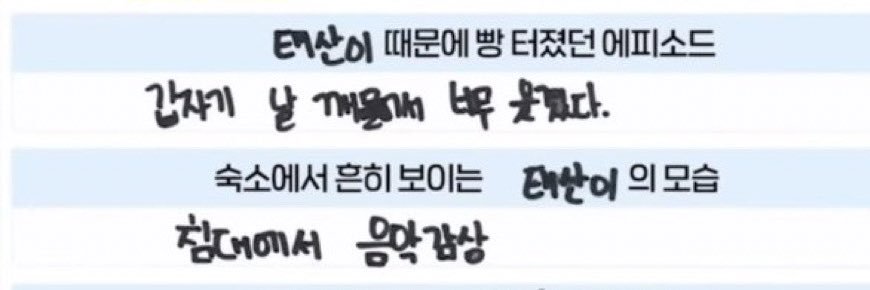 태산이 때문에 빵 터졌던 에피소드
갑자기 날 깨물어서 너무 웃겼다.
숙소에서 흔히 보이는 태산이 의 모습
침대에서 음악감상